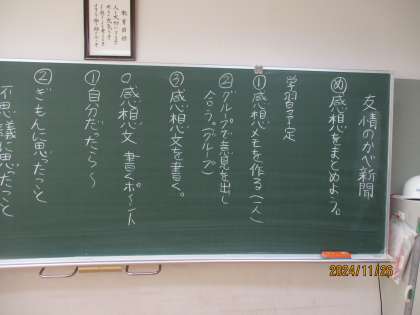 友情のかべ新聞
め 感想をまとめよう。
学習予定
① 感想メモを作る(一人)
② グループで意見を出し
合う。(グループ)
③ 感想文を書く。
○感想文 書くポイント
① 自分だったら~
② ぎもんに思ったこと
不思議に思ったこと
教育目標
2024/11/26